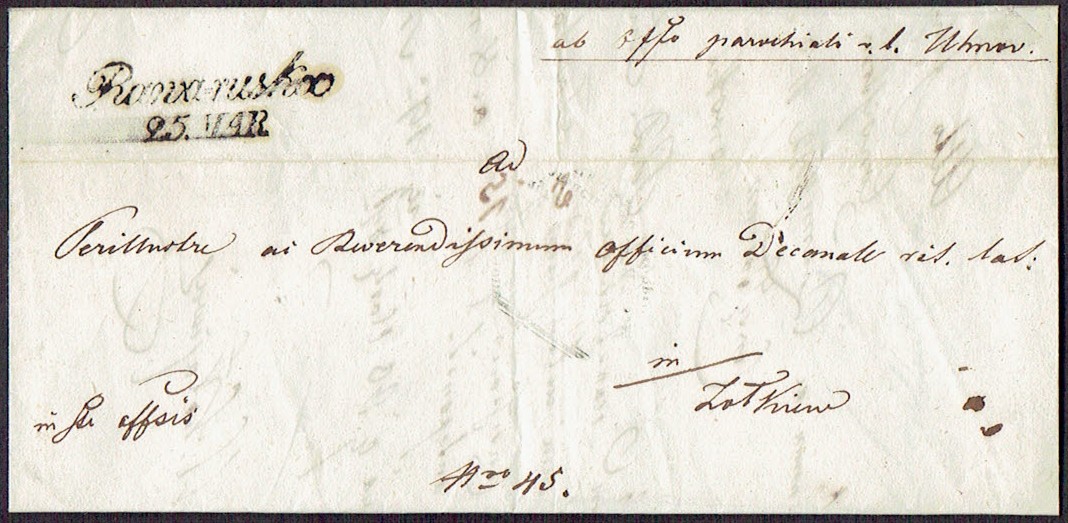 ab Offo parochiali r. l. Uhnov.
Rawa-ruska
25. MAR
Ad
Perillustre ac Reverendissimum Officium Decanale rit. lat:
in
Zolkiew
in Ste offsis
Nro 45.